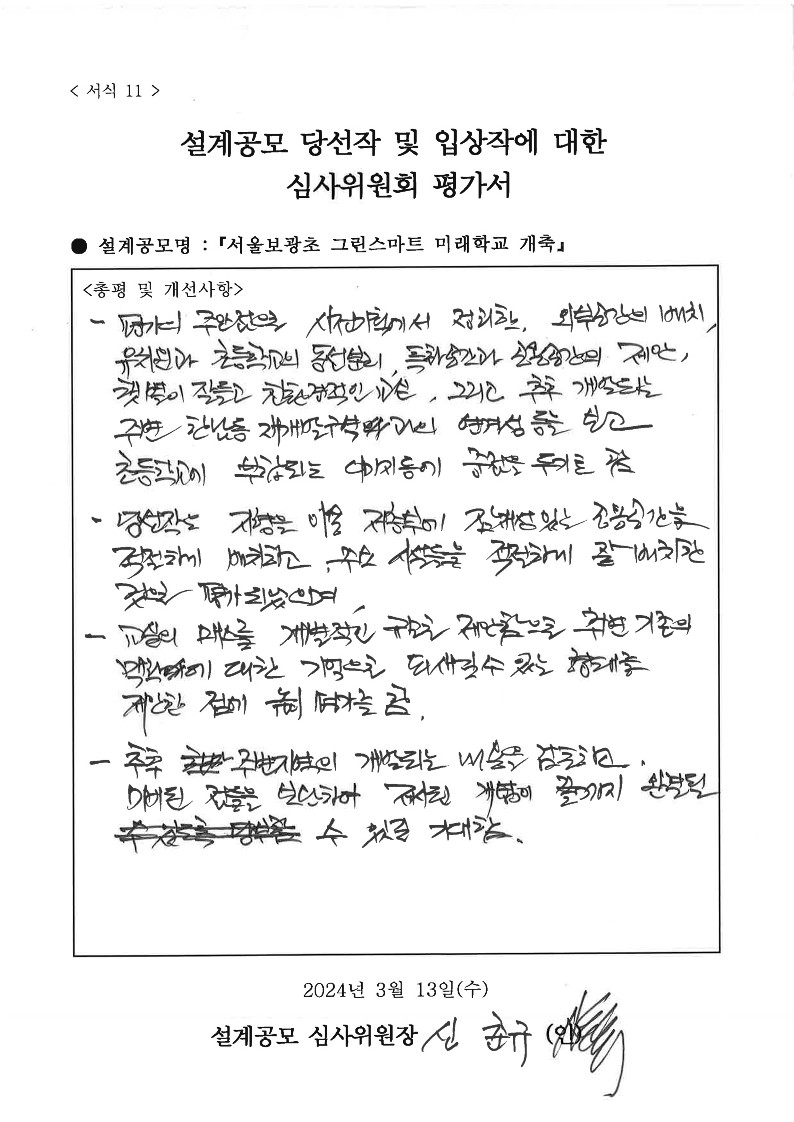 < 서식 11 >
설계공모 당선작 및 입상작에 대한
심사위원회 평가서
● 설계공모명 : 『서울보광초 그린스마트 미래학교 개축』
<총평 및 개선사항>
- 평가의 주안점으로 사전기획에서 정리한, 외부공간의 배치,
유치원과 초등학교의 동선분리, 특화공간과 공용공간의 제안,
햇볕이 잘들고 친환경적인 교실, 그리고 추후 개발되는
주변 한남동 재개발구역과의 연계성 등을 보고
초등학교에 부합되는 이미지 등에 중점을 두기로 함
- 당선작은 지형을 이용 저층부에 짜임새 있는 공용공간을
적절하게 배치하고, 주요 시설들을 적절하게 잘 배치한
것으로 평가되었으며,
- 교실의 매스를 개별적인 규모로 제안함으로 주변 기존의
대한 기억으로 되새길수 있는 형태를
제안한 점에 높이 평가를 함.
- 추후 주변지역의 개발되는 내용을 검토하고,
미비된 점들을 보완하여 제시된 개념이 끝까지 완결될
수 있길 기대함.
2024년 3월 13일(수)
설계공모 심사위원장 신 춘규 (인)